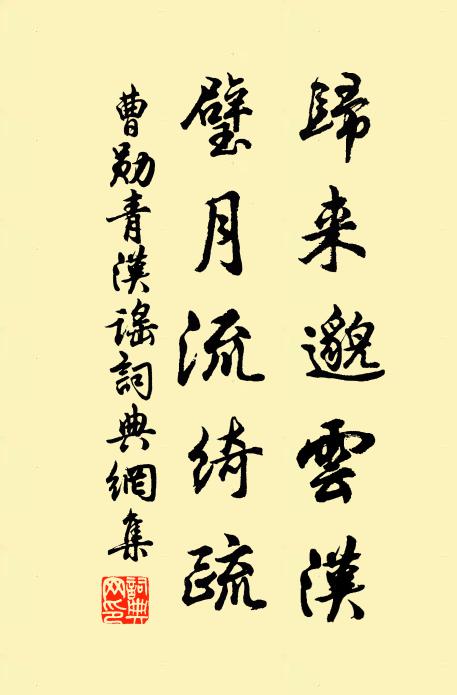 歸来邈雲漢
璧月流綺疏
曹勛青漢謠詞典網集
詞典网印